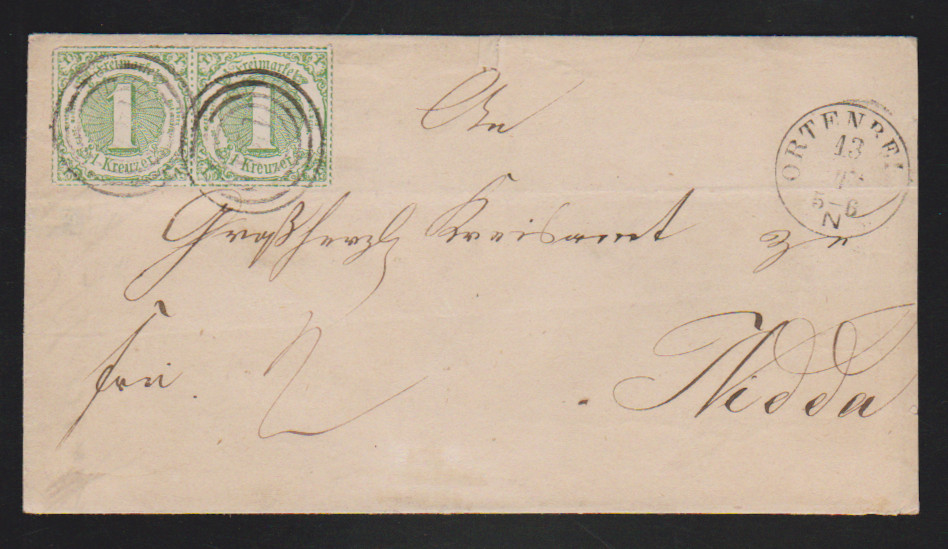 Freimarke
1
1 Kreuzer
Freimarke
1
1 Kreuzer
ORTENBE
13
5-6
N
An
Großherzl Kreisamt zu
frei 2
Nidda